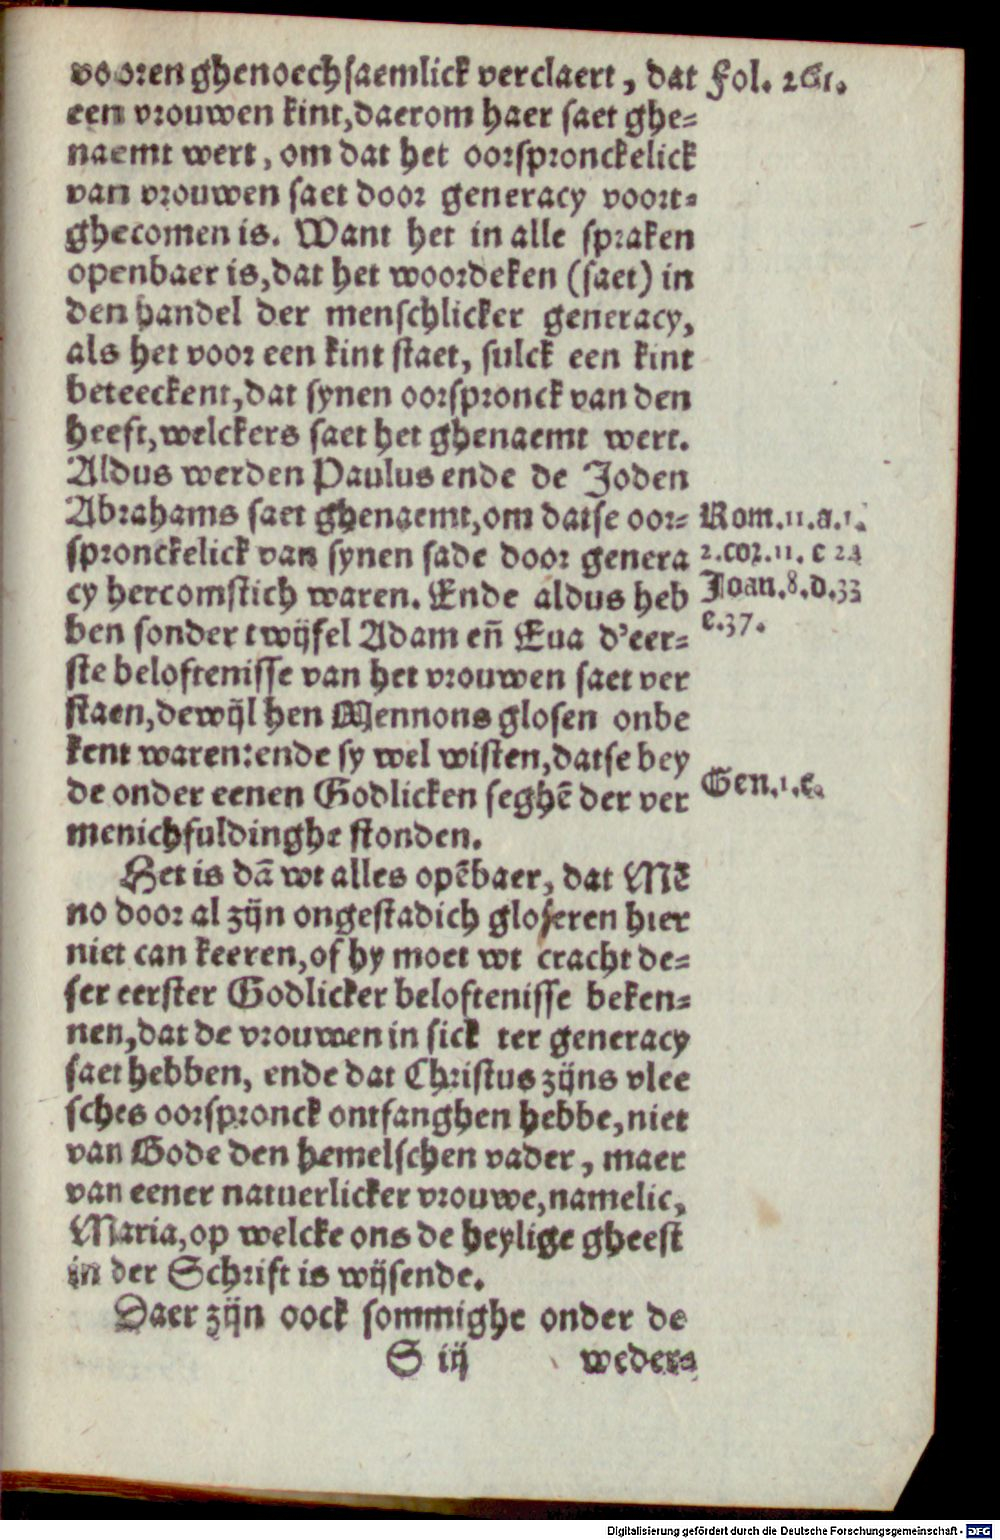 vooren ghenoechsaemlick verclaert, dat
een vrouwen kint, daerom haer saet ghe-
naemt wert, om dat het oorspronckelick
van vrouwen saet door generacy voort-
ghecomen is. Want het in alle spraken
openbaer is, dat het woordeken (saet) in
den handel der menschlicker generacy,
als het voor een kint staet, sulck een kint
beteeckent, dat synen oorspronck van den
heeft, welckers saet het ghenaemt wert.
Aldus werden Paulus ende de Joden
Abrahams saet ghenaemt, om datse oor-
spronckelick van synen sade door genera
cy hercomstich waren. Ende aldus heb
ben sonder twijfel Adam eñ Eua d'eer-
ste beloftenisse van het vrouwen saet ver
staen, dewijl hen Mennons glosen onbe
kent waren: ende sy wel wisten, datse bey
de onder eenen Godlicken seghē der ver
menichfuldinghe stonden.
Het is dā wt alles opēbaer, dat Mē
no door al zijn ongestadich gloseren hier
niet can keeren, of hy moet wt cracht de-
ser eerster Godlicker beloftenisse beken-
nen, dat de vrouwen in sick ter generacy
saet hebben, ende dat Christus zijns vlee
sches oorspronck ontfanghen hebbe, niet
van Gode den hemelschen vader, maer
van eener natuerlicker vrouwe, namelic,
Maria, op welcke ons de heylige gheest
in der Schrift is wijsende.
Daer zijn oock sommighe onder de
S iij weder-
Fol. 261.
Rom. 11. a. 1.
2. cor. 11. c 22
Joan. 8. d. 33
e. 37.
Gen. 1. e.
Digitalisierung gefördert durch die Deutsche Forschungsgemeinschaft - DFG